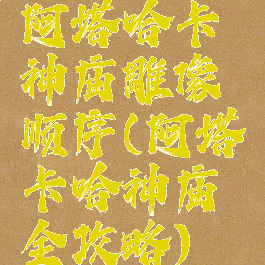 阿塔哈卡
神庙雕像
顺序(阿塔
卡哈神庙
全攻略)